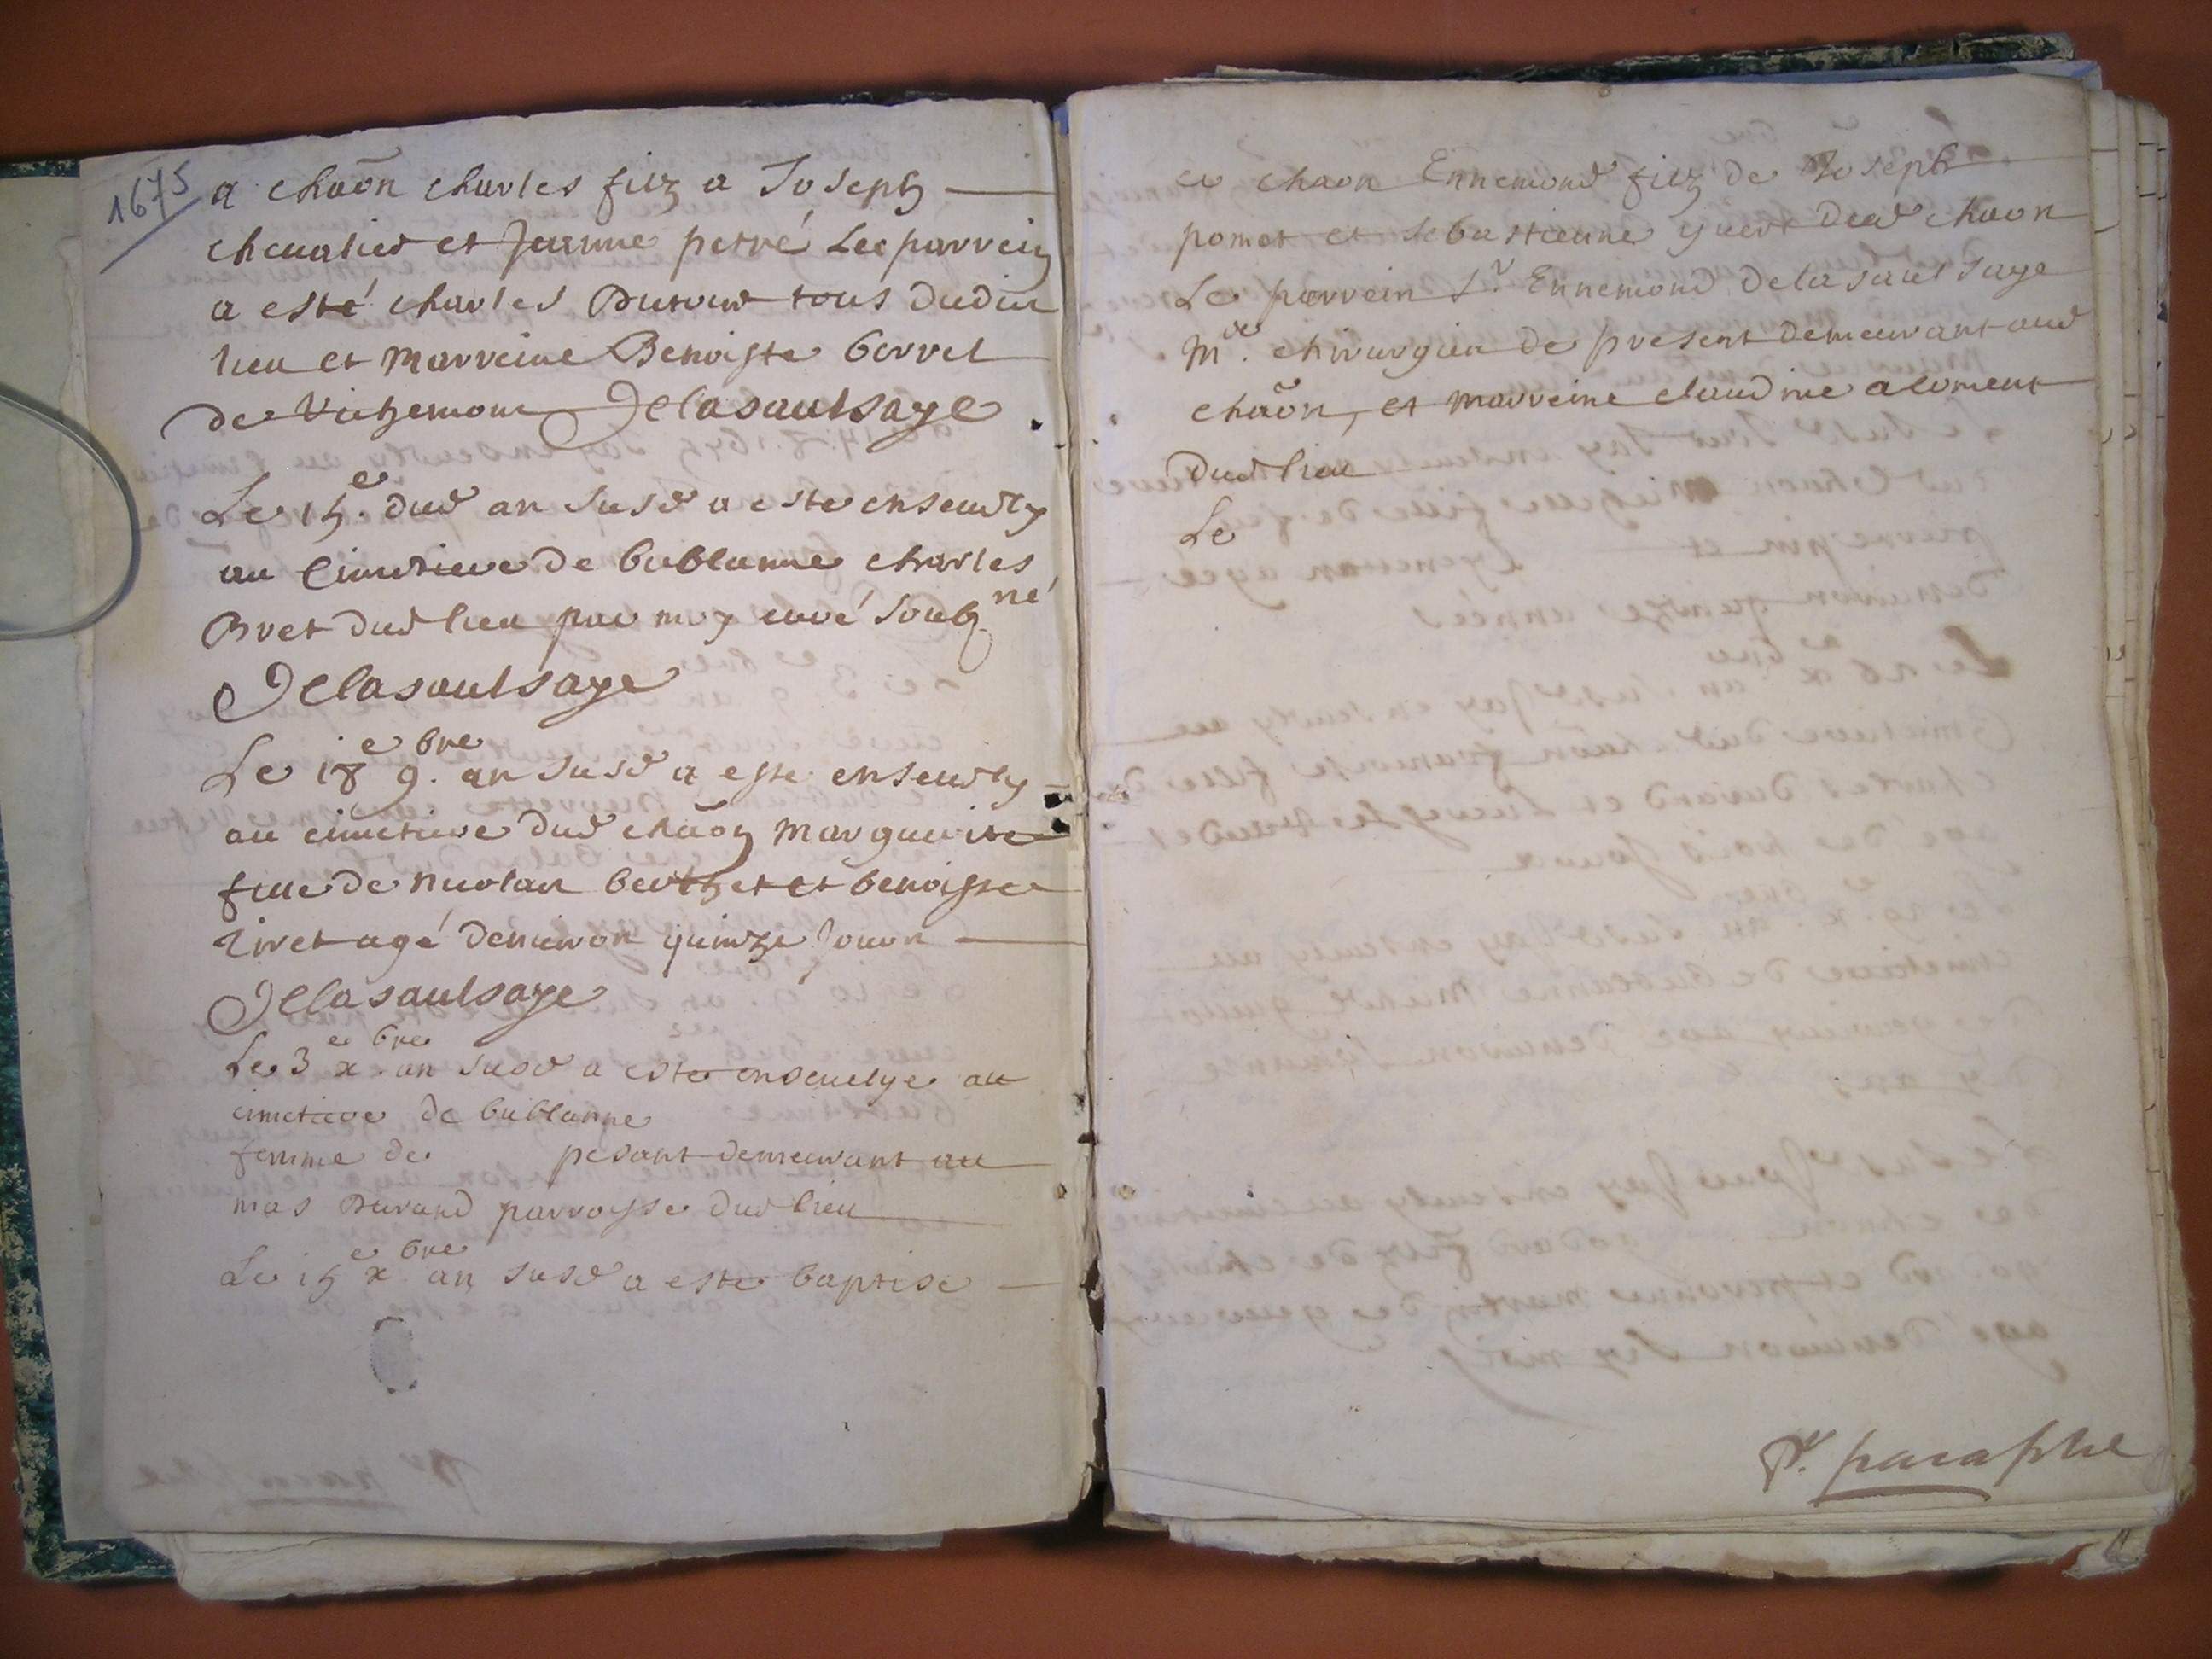 1675
a chaōn charles filz a Joseph
chevalier et Jeanne perré Le parrein
a esté charles Durour tous dudit
lieu et marreine Benoiste borrel
de Delasaulsaye
Le 15.e dud an susd a este ensevely
au cimetiere de bublanne charles
Bret dud lieu par moy curé soubzné
Delasaulsaye
Le 18e 9.bre an susd a este ensevely
au cimetiere dud chaōn marguerite
fille de nicolar berthet et benoiste
rivet agé denviron quinze Jours
Delasaulsaye
Le 3e xbre an susd a este ensevelye au
cimetiere de bublanne
femme de pesant demeurant au
mas Durand parroisse dud lieu
Le 15e xbre an susd a este baptisé
a chaon Ennemond filz de Joseph
pomet et sebastienne guert dud chaon
Le parrein Sr. Ennemond Delasaulsaye
Mre. chirurgien de present demeurant aud
chaōn, et marreine claudine aloment
dud lieu
Le
Pr. paraphe